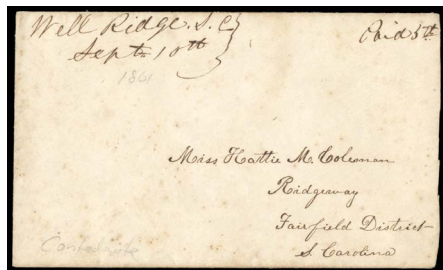 Well Ridge. S. C.
Sept 10th
Paid 5cts
1861
Miss Hattie M. Coleman
Ridgeway
Fairfield District
S. Carolina
Confederate